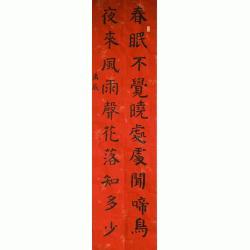 春眠不覺曉處處聞啼鳥
夜來風雨聲花落知多少